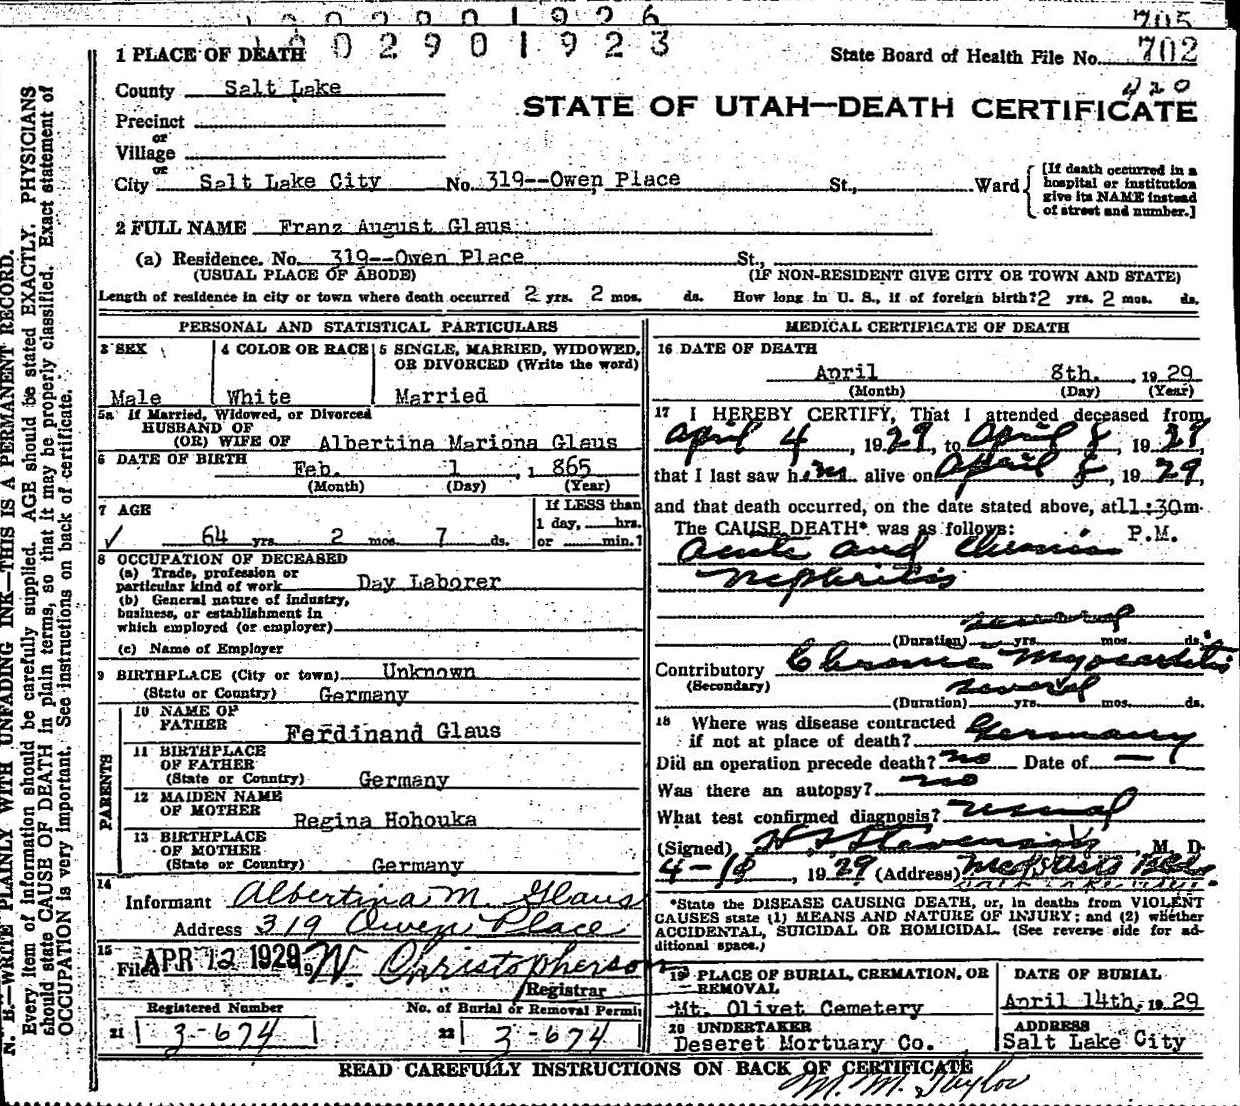 1 PLACE OF DEATH 0 2 9 0 1 9 2 3 State Board of Health File No. 702
County Salt Lake 420
STATE OF UTAH—DEATH CERTIFICATE
Precinct
or
Village
or
City Salt Lake City No. 319--Owen Place St., Ward [If death occurred in a hospital or institution give its NAME instead of street and number.]
2 FULL NAME Franz August Glaus
(a) Residence. No. 319--Owen Place St.,
(USUAL PLACE OF ABODE) (IF NON-RESIDENT GIVE CITY OR TOWN AND STATE)
Length of residence in city or town where death occurred 2 yrs. 2 mos. ds. How long in U. S., if of foreign birth? 2 yrs. 2 mos. ds.
PERSONAL AND STATISTICAL PARTICULARS
3 SEX
Male
4 COLOR OR RACE
White
5 SINGLE, MARRIED, WIDOWED,
OR DIVORCED (Write the word)
Married
5a If Married, Widowed, or Divorced
HUSBAND OF
(OR) WIFE OF Albertina Mariona Glaus
6 DATE OF BIRTH Feb. 1, 1865
(Month) (Day) (Year)
7 AGE
64 yrs. 2 mos. 7 ds.
If LESS than
1 day, hrs.
or min.?
8 OCCUPATION OF DECEASED
(a) Trade, profession or
particular kind of work Day Laborer
(b) General nature of industry,
business, or establishment in
which employed (or employer)
(c) Name of Employer
9 BIRTHPLACE (City or town) Unknown
(State or Country) Germany
PARENTS
10 NAME OF
FATHER Ferdinand Glaus
11 BIRTHPLACE
OF FATHER
(State or Country) Germany
12 MAIDEN NAME
OF MOTHER Regina Hohouka
13 BIRTHPLACE
OF MOTHER
(State or Country) Germany
14
Informant Albertina M. Glaus
Address 319 Owen Place
15
Filed APR 12 1929 19 W. Christopherson
Registrar
Registered Number No. of Burial or Removal Permit
21 3-674 22 3-674
MEDICAL CERTIFICATE OF DEATH
16 DATE OF DEATH
April 8th. , 19 29
(Month) (Day) (Year)
17 I HEREBY CERTIFY, That I attended deceased from
April 4, 1929, to April 8, 1929,
that I last saw him alive on April 8, 1929,
and that death occurred, on the date stated above, at 11:30 m.
The CAUSE DEATH* was as follows: P.M.
Acute and Chronic
Nephritis
several
(Duration) yrs. mos. ds.
Contributory Chronic Myocarditis
(Secondary) several
(Duration) yrs. mos. ds.
18 Where was disease contracted
if not at place of death? Germany
Did an operation precede death? no Date of —
Was there an autopsy? no
What test confirmed diagnosis? usual
(Signed) Stevenson, M. D.
4-18, 1929 (Address)
*State the DISEASE CAUSING DEATH, or, in deaths from VIOLENT
CAUSES state (1) MEANS AND NATURE OF INJURY; and (2) whether
ACCIDENTAL, SUICIDAL OR HOMICIDAL. (See reverse side for ad-
ditional space.)
19 PLACE OF BURIAL, CREMATION, OR
REMOVAL
Mt. Olivet Cemetery
DATE OF BURIAL
April 14th. 19 29
20 UNDERTAKER
Deseret Mortuary Co.
ADDRESS
Salt Lake City
READ CAREFULLY INSTRUCTIONS ON BACK OF CERTIFICATE
M. M. Taylor
N. B.—WRITE PLAINLY WITH UNFADING INK—THIS IS A PERMANENT RECORD.
Every item of information should be carefully supplied. AGE should be stated EXACTLY. PHYSICIANS
should state CAUSE OF DEATH in plain terms, so that it may be properly classified. Exact statement of
OCCUPATION is very important. See instructions on back of certificate.